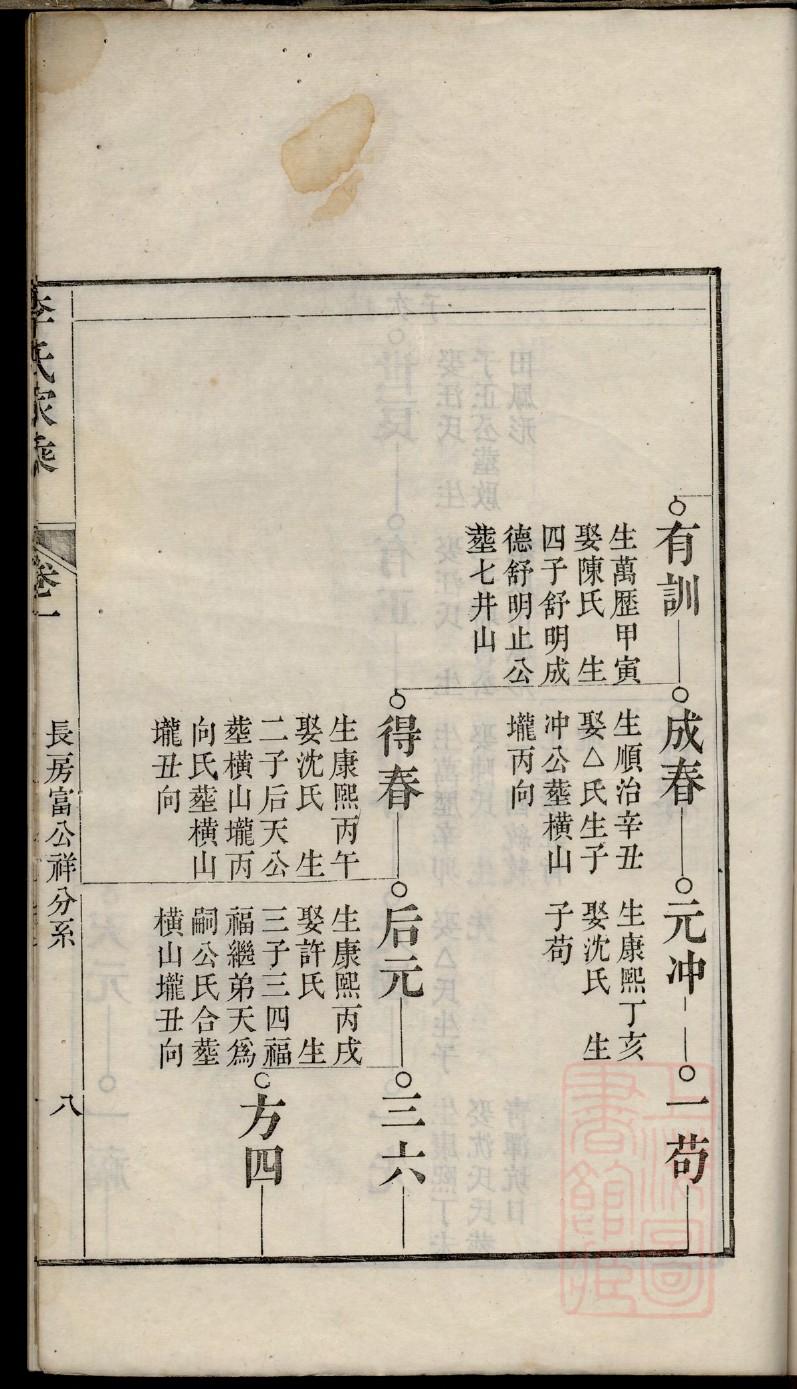 有訓
生萬歷甲寅
娶陳氏 生
四子舒明成
德舒明止公
塟七井山
成春
生順治辛丑
娶△氏生子
冲公塟橫山
壠丙向
元冲
生康熙丁亥
娶沈氏 生
子苟
一苟
得春
生康熙丙午
娶沈氏 生
二子后天公
塟橫山壠丙
向氏塟橫山
壠丑向
后元
生康熙丙戌
娶許氏 生
三子三四福
福繼弟天爲
嗣公氏合塟
橫山壠丑向
三六
方四
李氏家乘
卷一
長房富公祥分系
八